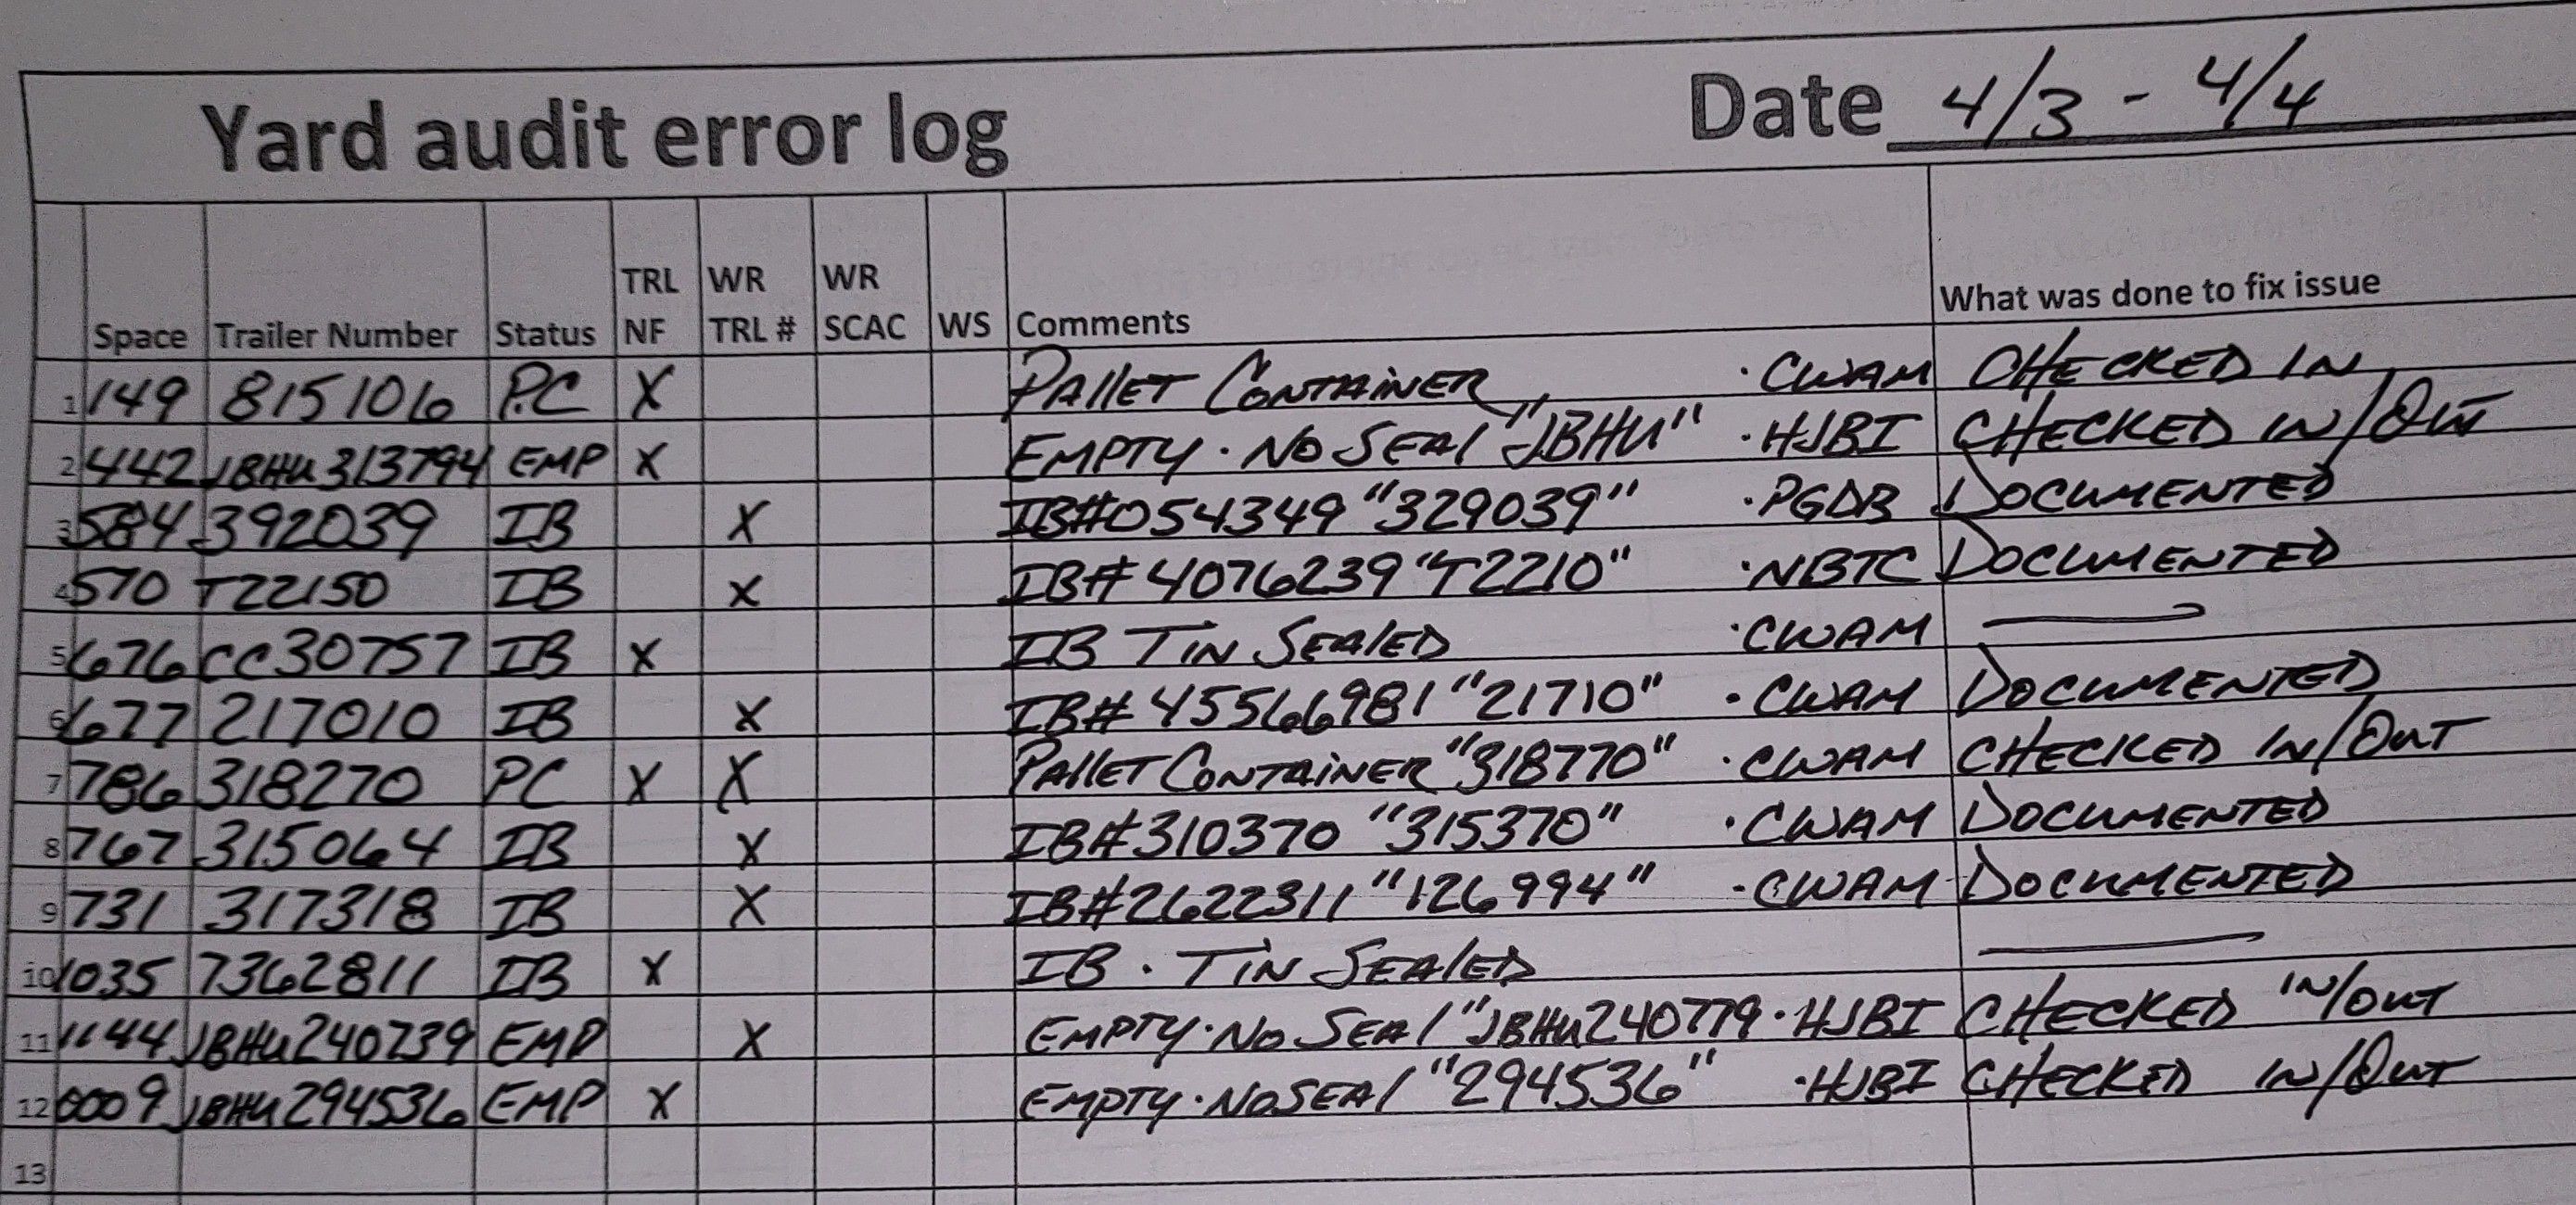 Yard audit error log Date 4/3 - 4/4
Space Trailer Number Status TRL NF WR TRL # WR SCAC WS Comments What was done to fix issue
1 149 815106 P.C X PALLET CONTAINER · CWAM CHECKED IN
2 442 JBHU313794 EMP X EMPTY · NO SEAL "JBHU" · HJBI CHECKED IN/OUT
3 584 392039 IB X IB#054349 "329039" · PGDB DOCUMENTED
4 570 T22150 IB X IB# 4076239 "T2210" · NBTC DOCUMENTED
5 676 CC30757 IB X IB TIN SEALED · CWAM —
6 677 217010 IB X IB# 45566981 "21710" · CWAM DOCUMENTED
7 786 318270 PC X X PALLET CONTAINER "318770" · CWAM CHECKED IN/OUT
8 767 315064 IB X IB#310370 "315370" · CWAM DOCUMENTED
9 731 317318 IB X IB#2622311 "126994" - CWAM DOCUMENTED
10 1035 7362811 IB X IB · TIN SEALED —
11 1144 JBHU240739 EMP X EMPTY · NO SEAL "JBHU240779 · HJBI CHECKED IN/OUT
12 0009 JBHU294536 EMP X EMPTY · NO SEAL "294536" · HJBI CHECKED IN/OUT
13